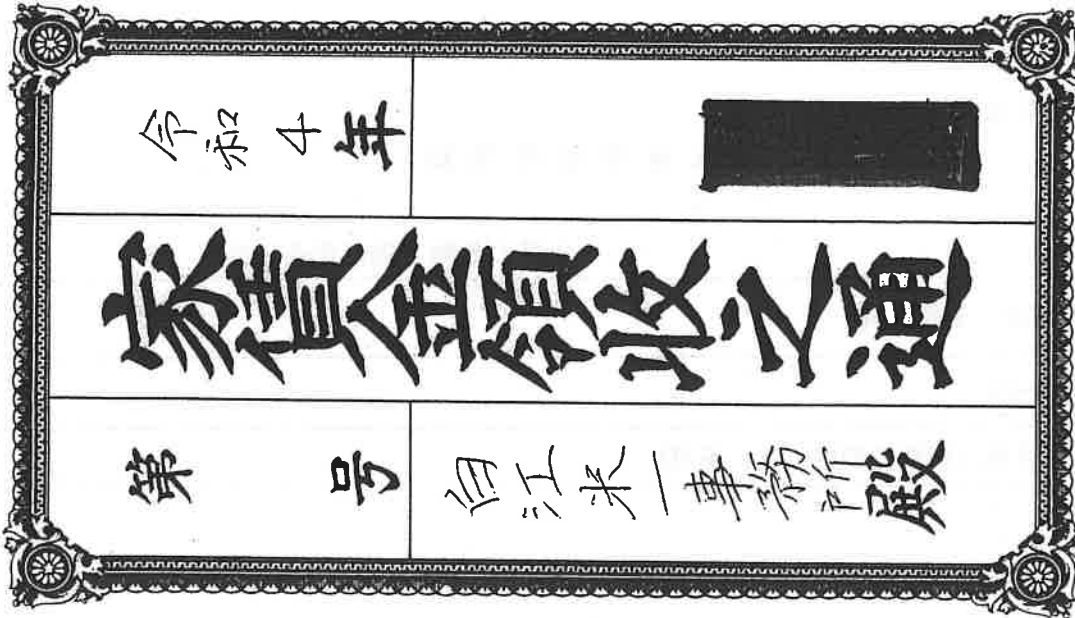 令和4年
家賃金領収之通
第 号
白江米一事務所殿